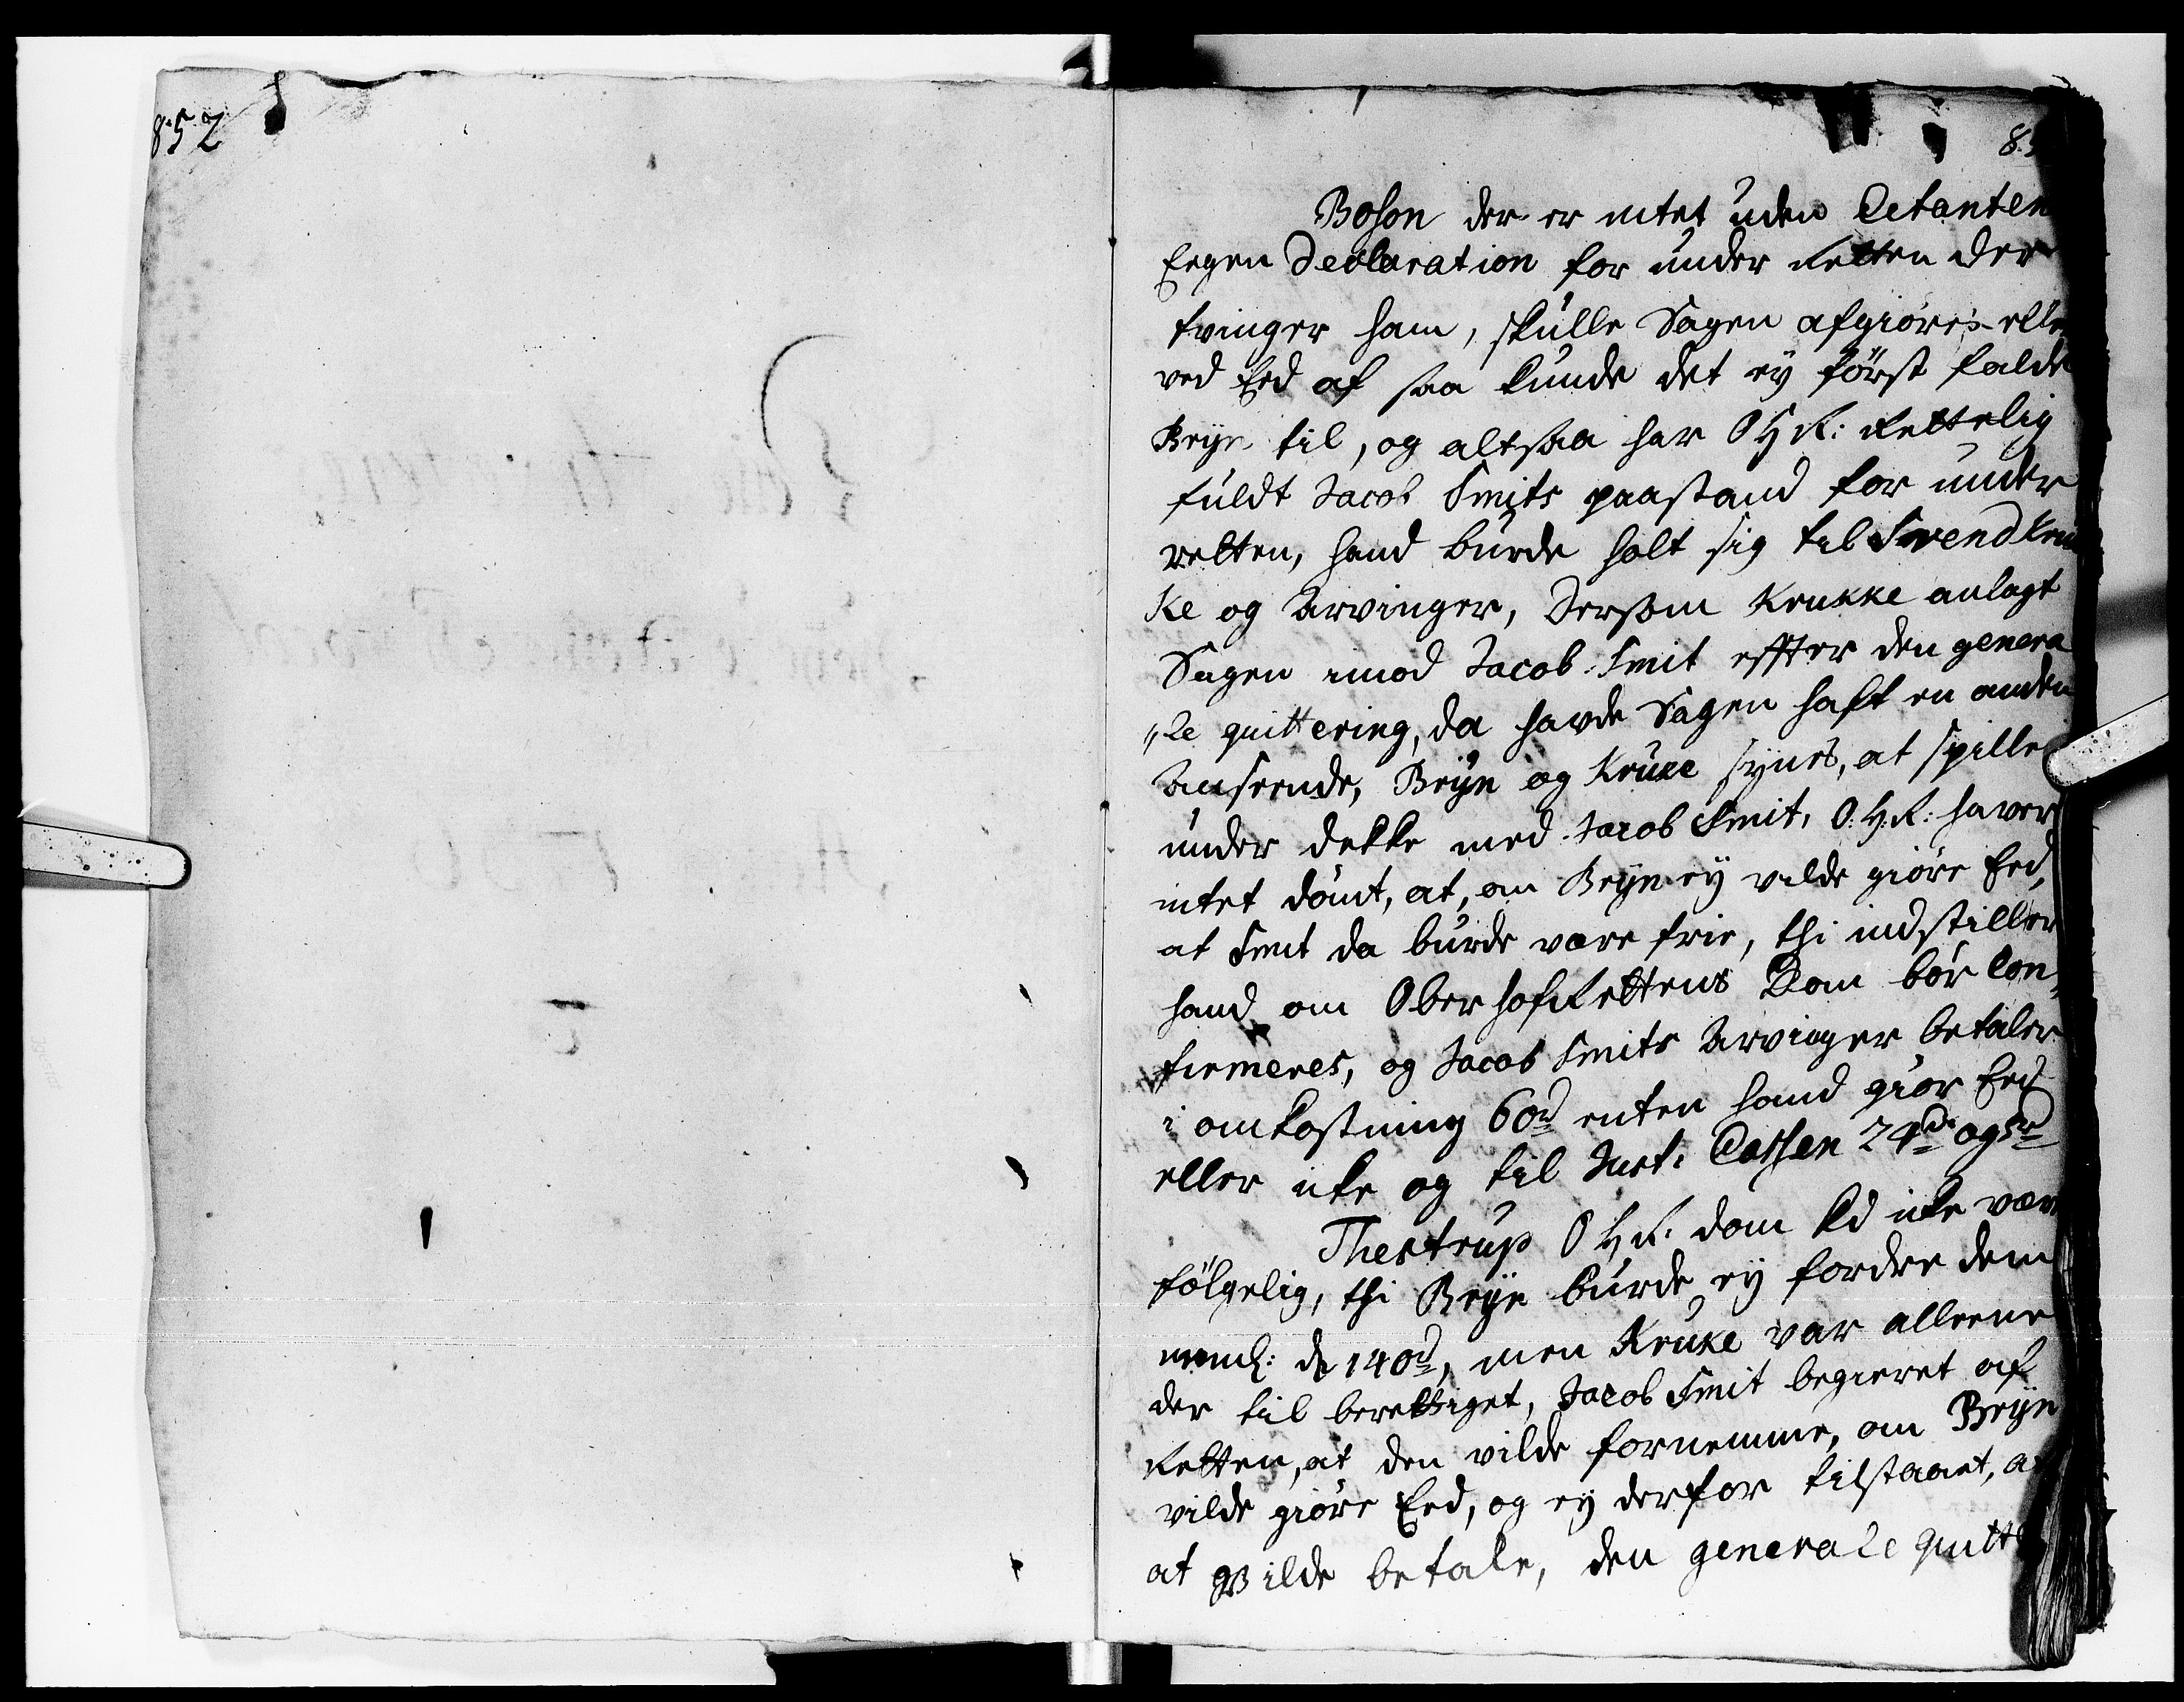 852
8.5
Boson der er intet uden Citanten
Eegen Declaration for under Retten der
tvinger ham, skulle Sagen afgiøres elle
ved Eed af saa kunde det ey først falde
Bryn til, og altsaa har O H R: Rettelig
fuldt Jacob Smits paastand for under
retten, hand burde holt sig til Svend Kru
ke og Arvinger, Dersom Krukke anlagt
Sagen imod Jacob Smit effter den genera
„le quittering, da havde Sagen haft en anden
Anseende, Bryn og Kruke synes, at spille
under dekke med Jacob Smit, O. H. R: haver
intet dømt, at, om Bryn ey vilde giøre Eed,
at Smit da burde være frie, thi indstiller
hand om Oberhofrettens Dom bør Con„
firmeres, og Jacob Smits Arvinger betaler
i omkostning 60 rd enten hand giør Eed
eller ike og til Just: Cassen 24 rd og 5 rd
Thestrup O H R: dom kd ike være
følgelig, thi Bryn burde ey fordre dem
neml: de 140 rd, men Kruke var alleene
der til berettiget, Jacob Smit begieret af
Retten, at den vilde fornemme, om Bryn
vilde giøre Eed, og ey derfor tilstaaet, at
at vilde betale, den generale quitt